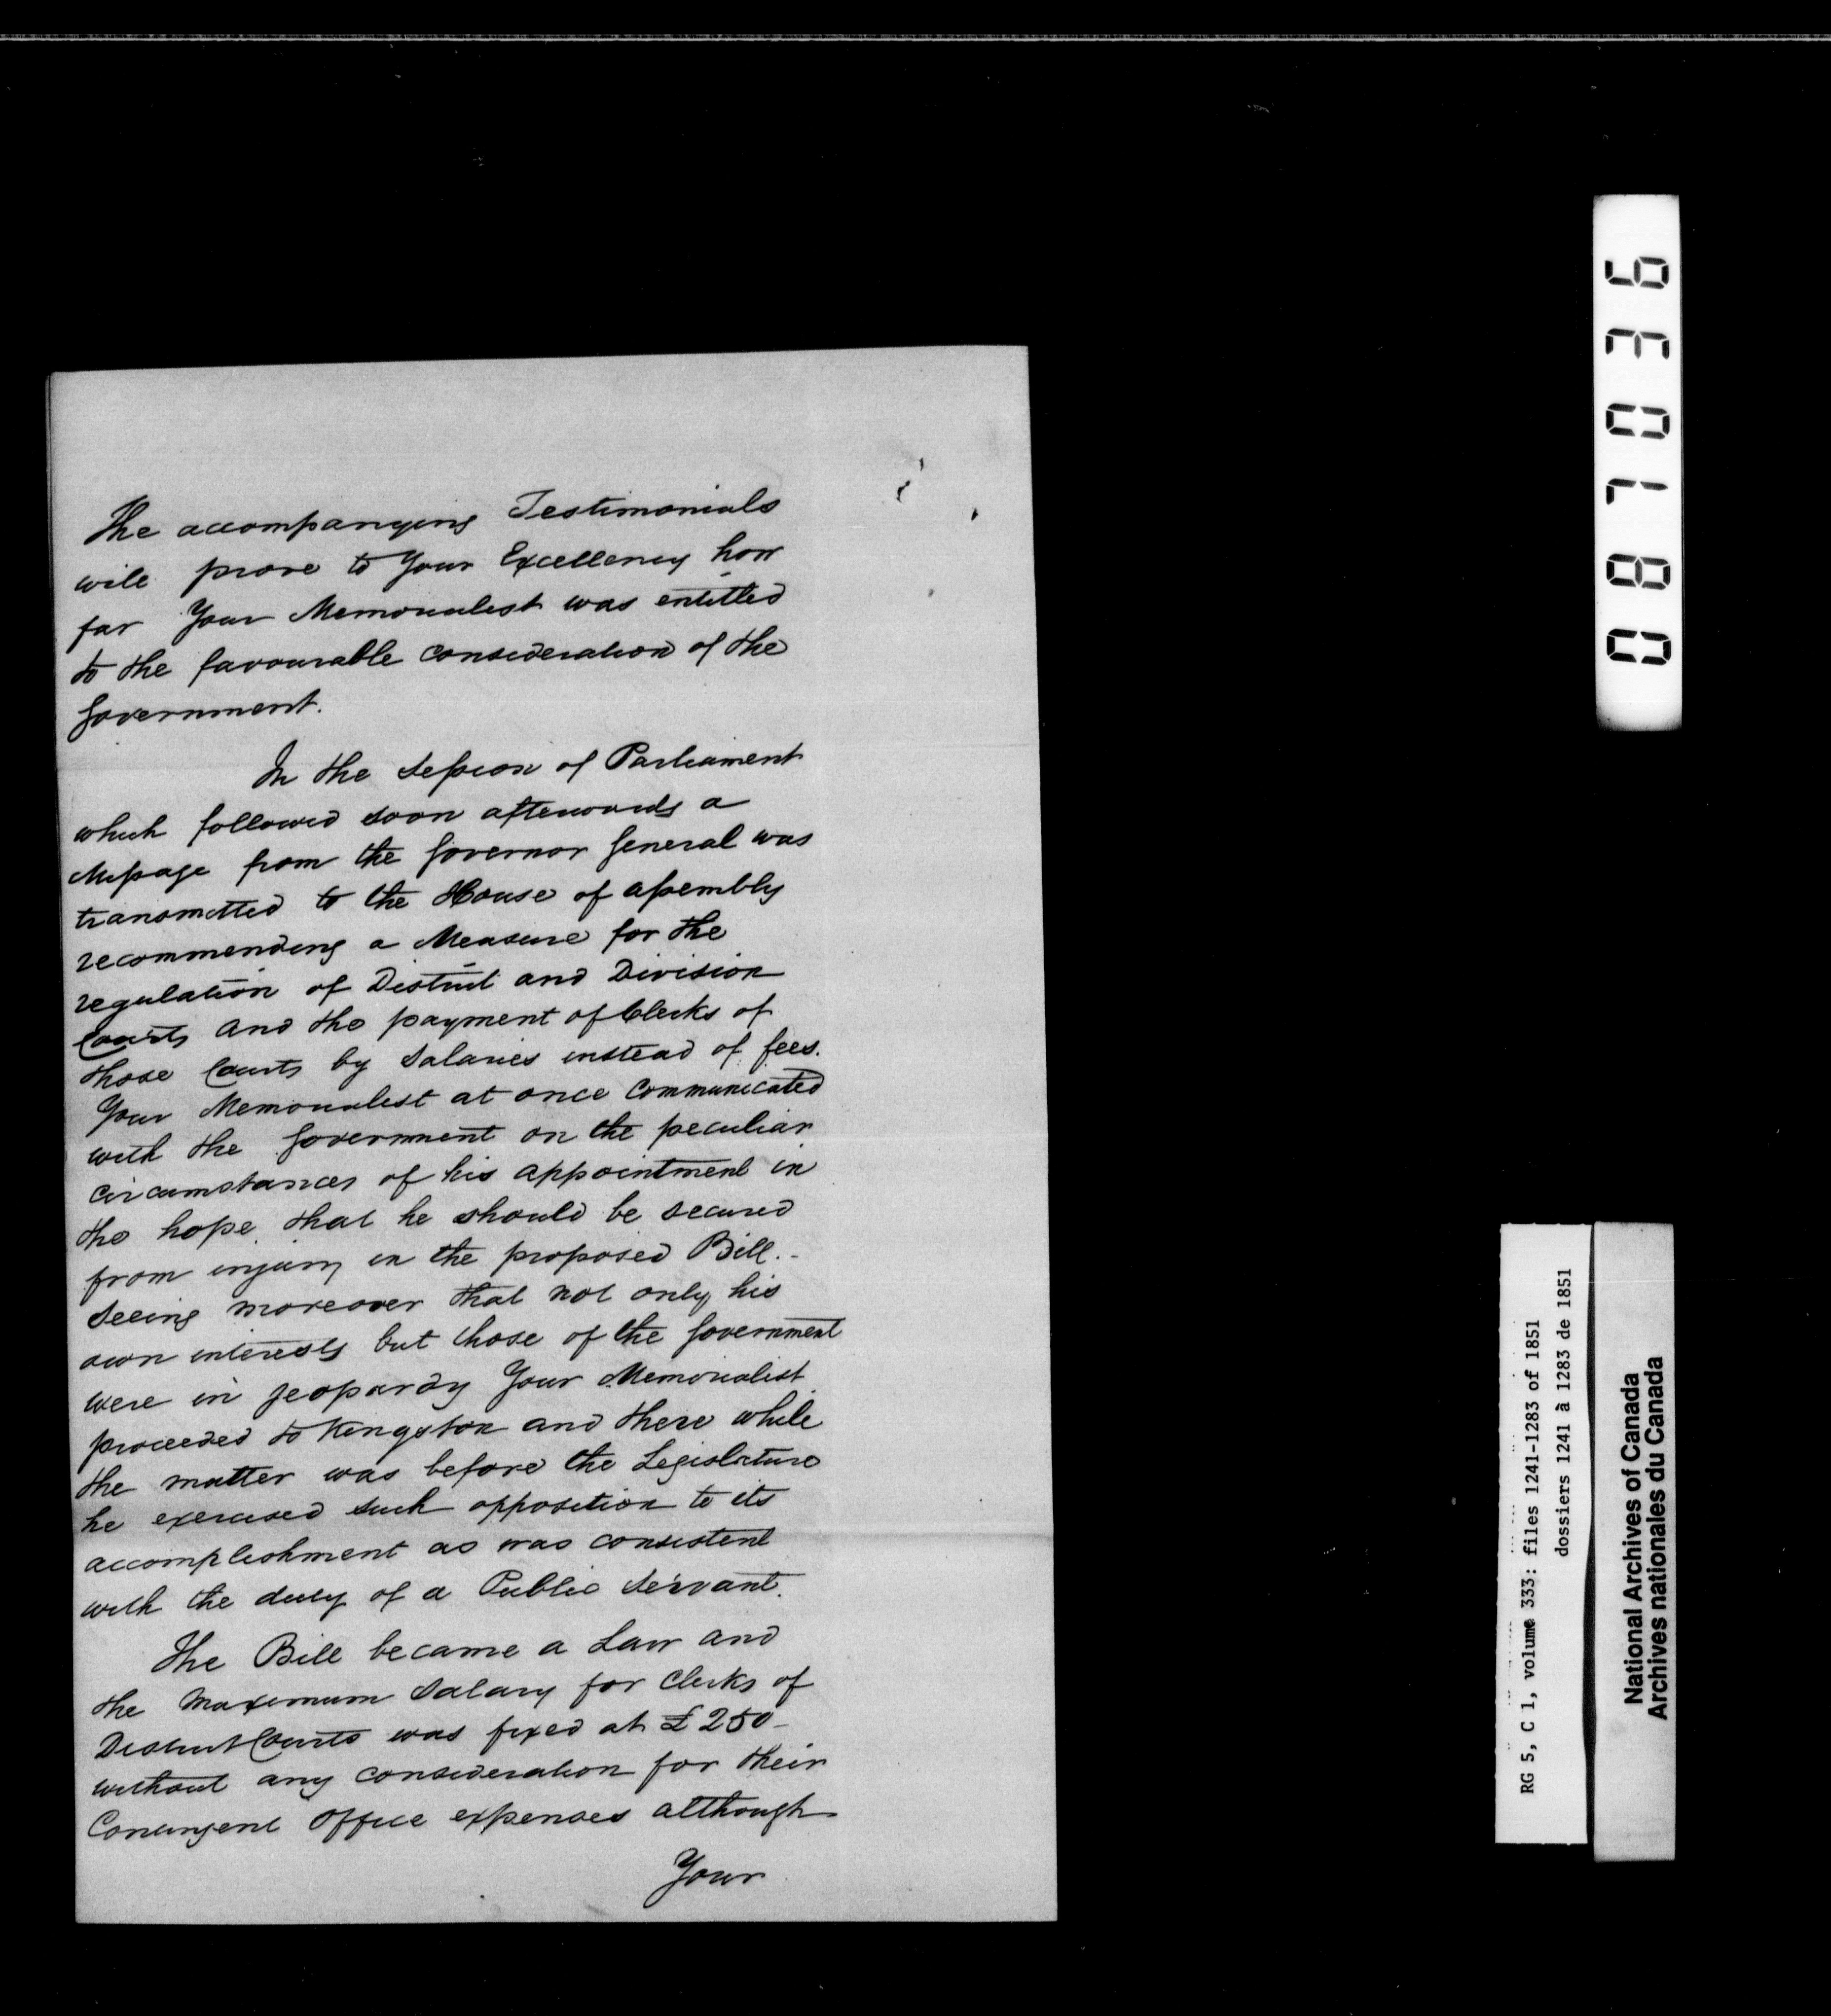 The accompanying Testimonials
will prove to Your Excellency how
far Your Memorialist was entitled
to the favourable consideration of the
Government.
In the Session of Parliament
which followed soon afterwards a
Message from the Governor General was
transmitted to the House of Assembly
recommending a Measure for the
regulation of District and Division
Courts and the payment of Clerks of
those Courts by Salaries instead of fees.
Your Memorialist at once communicated
with the Government on the peculiar
circumstances of his appointment in
the hope that he should be secured
from injury in the proposed Bill.-
Seeing moreover that not only his
own interests but those of the Government
were in jeopardy Your Memorialist
proceeded to Kingston and there while
the matter was before the Legislature
he exercised such opposition to its
accomplishment as was consistent
with the duty of a Public Servant.
The Bill became a Law and
the Maximum Salary for Clerks of
District Courts was fixed at £250-
without any consideration for their
Contingent Office expenses although
Your
087036
RG 5, C 1, volume 333: files 1241-1283 of 1851
dossiers 1241 à 1283 de 1851
National Archives of Canada
Archives nationales du Canada